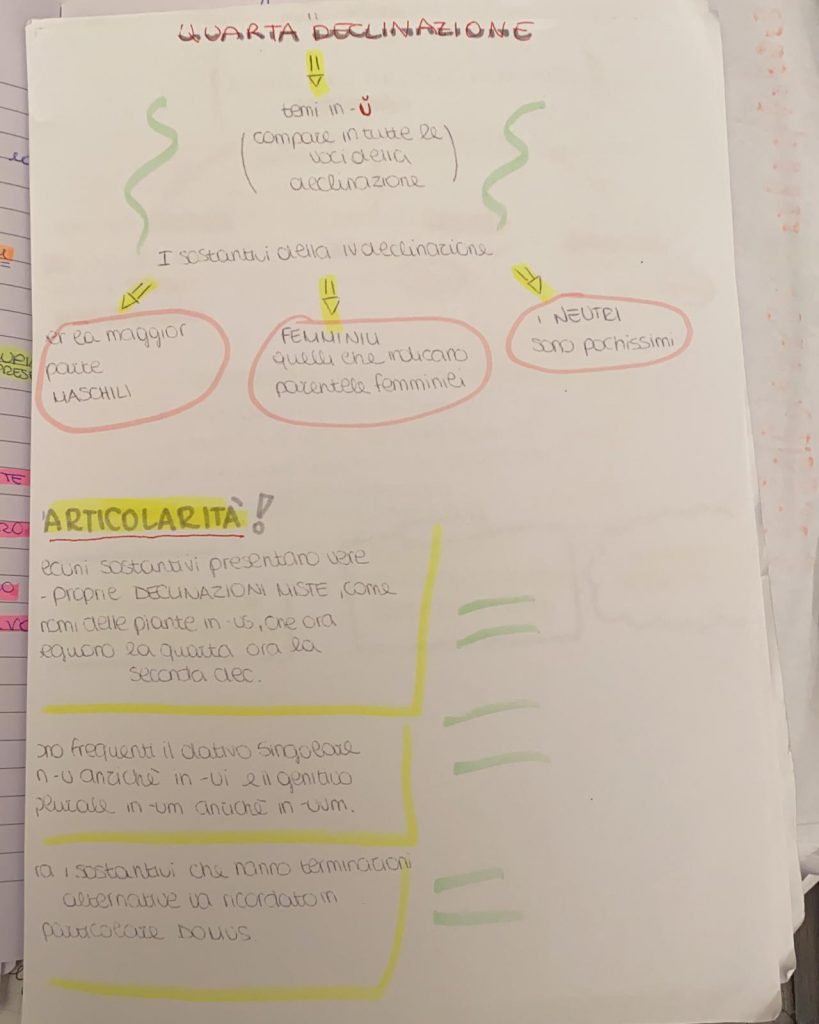 QUARTA DECLINAZIONE
temi in -ŭ
(compare in tutte le
voci della
declinazione)
I sostantivi della IV declinazione
er la maggior
parte
MASCHILI
FEMMINILI
quelli che indicano
parentele femminili
i NEUTRI
sono pochissimi
ARTICOLARITÀ!
lcuni sostantivi presentano vere
- proprie DECLINAZIONI MISTE, come
nomi delle piante in -us, che ora
eguono la quarta ora la
seconda dec.
ono frequenti il dativo singolare
n -u anziché in -ui e il genitivo
plurale in -um anziché in -uum.
ra i sostantivi che hanno terminazioni
alternative va ricordato in
particolare DOMUS.